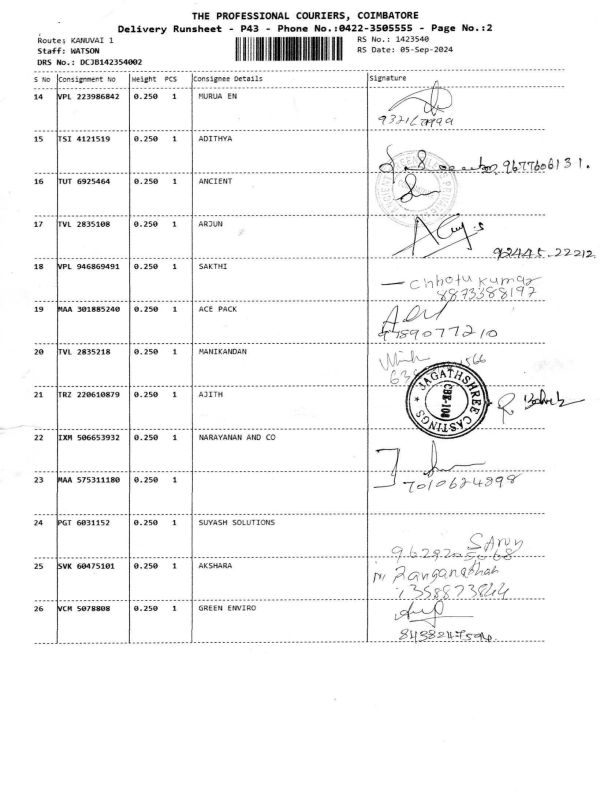 THE PROFESSIONAL COURIERS, COIMBATORE
Delivery Runsheet - P43 - Phone No.:0422-3505555 - Page No.:2
Route: KANUVAI 1 RS No.: 1423540
Staff: WATSON RS Date: 05-Sep-2024
DRS No.: DCJB142354002
S No Consignment No Weight PCS Consignee Details Signature
14 VPL 223986842 0.250 1 MURUA EN
15 TSI 4121519 0.250 1 ADITHYA
9677606131.
16 TUT 6925464 0.250 1 ANCIENT
17 TVL 2835108 0.250 1 ARJUN
962445.22212
18 VPL 946869491 0.250 1 SAKTHI
Chhotu Kumar
8873388197
19 MAA 301885240 0.250 1 ACE PACK
9789077210
20 TVL 2835218 0.250 1 MANIKANDAN
1566
21 TRZ 220610879 0.250 1 AJITH
JAGATHSHREE CASTINGS
CBE-108
22 IXM 506653932 0.250 1 NARAYANAN AND CO
23 MAA 575311180 0.250 1
7010624898
24 PGT 6031152 0.250 1 SUYASH SOLUTIONS
SArun
25 SVK 60475101 0.250 1 AKSHARA
Ranganathan
26 VCM 5078808 0.250 1 GREEN ENVIRO